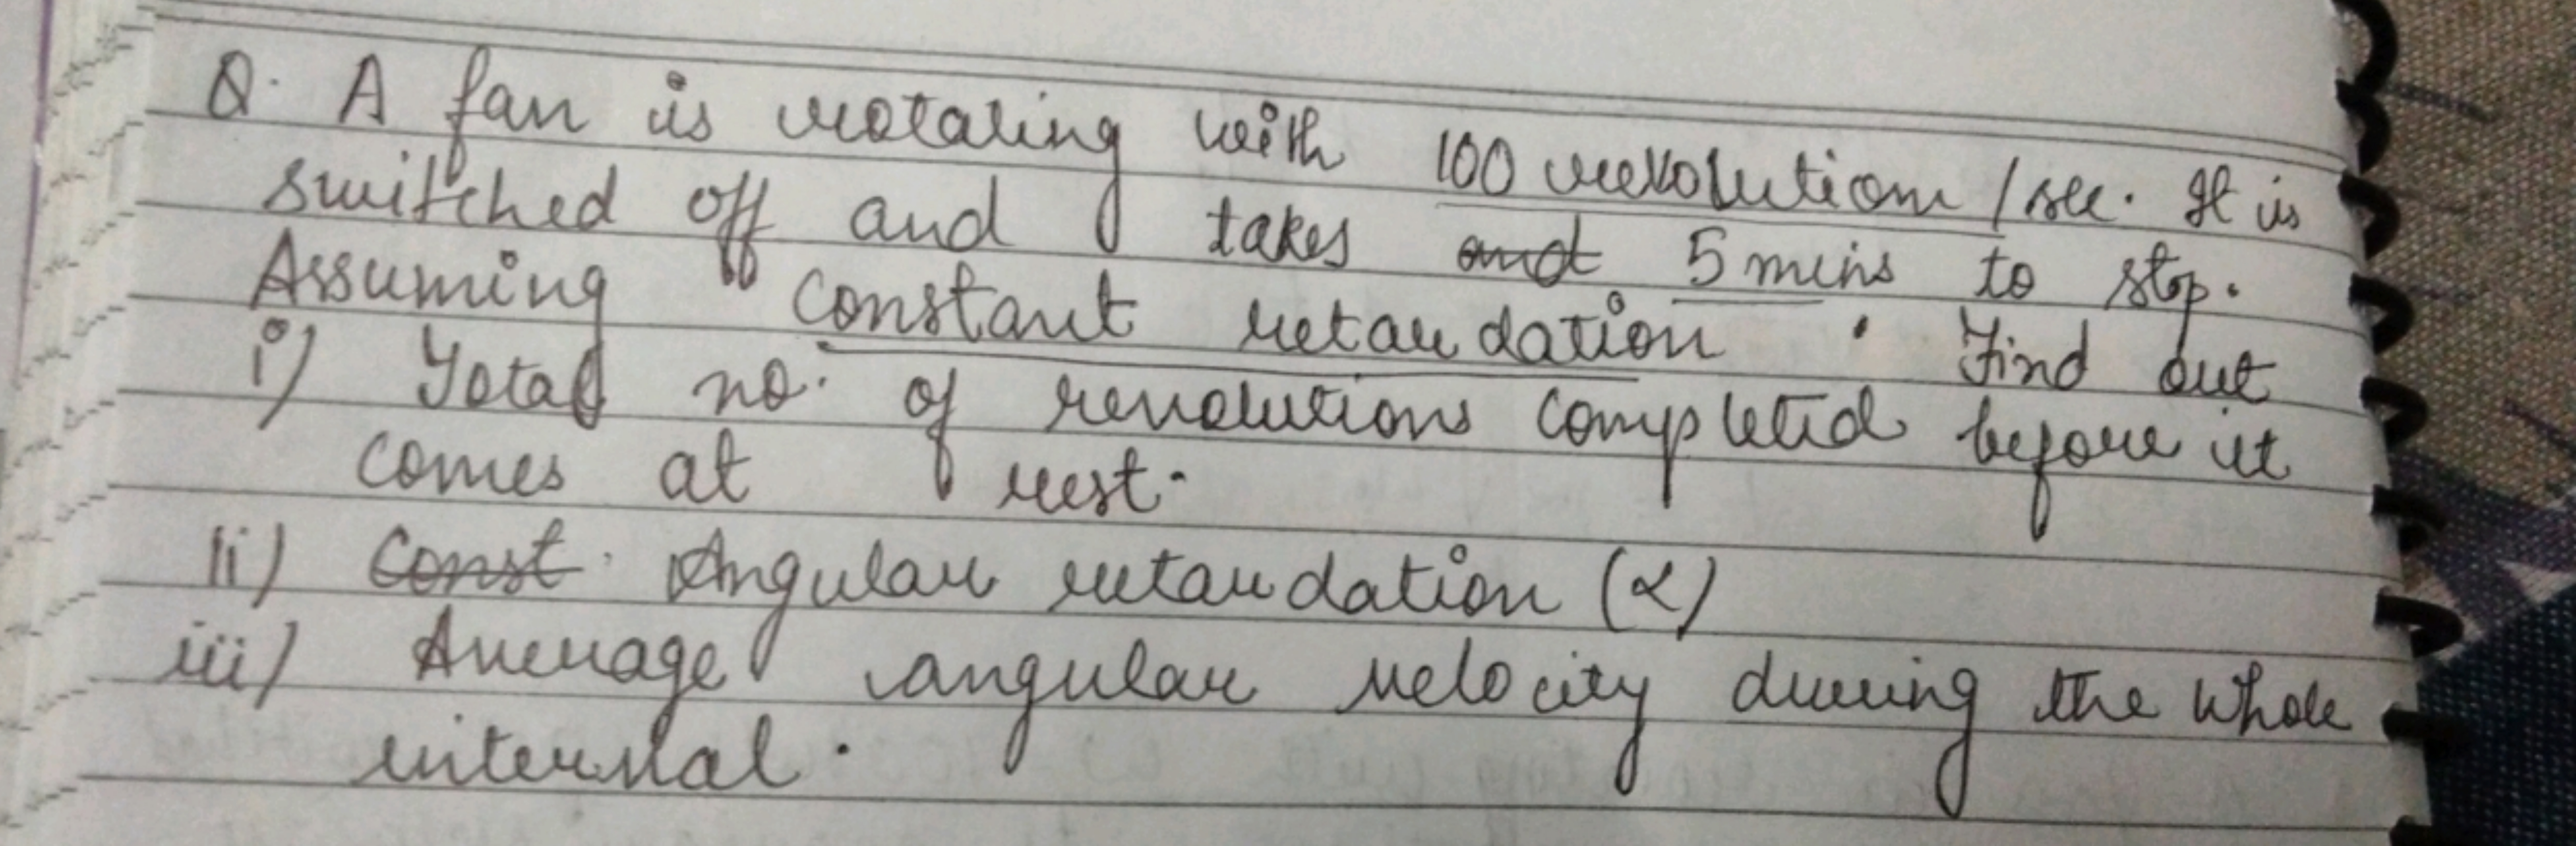 Q. A fan is rotating with 100 revolution /sec. It is
switched off and takes and 5 mins to stop.
Assuming constant retardation . Find out
i) Total no. of revolutions completed before it
comes at rest.
ii) Const. Angular retardation (α)
iii) Average angular velocity during the whole
interval.